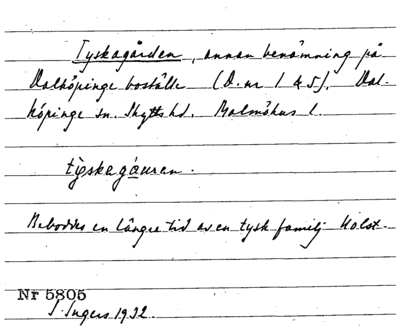 Tyskagården, annan benämning på
Dalköpinge boställe (D. nr 1 & 5). Dal-
köpinge sn. Skytts hd. Malmöhus l.
tyskagåuren.
Beboddes en längre tid av en tysk familj Holst.
Nr 5805
I. Ingers 1932.